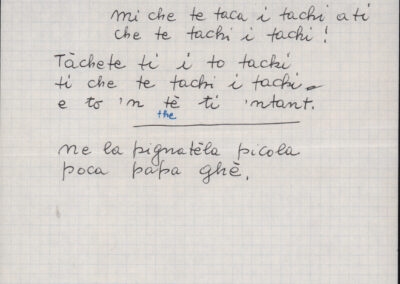 mi che te taca i tachi a ti
che te tachi i tachi !
Tàchete ti i to tachi
ti che te tachi i tachi
e to 'n tè ti 'ntant.
the
ne la pignatèla picola
poca papa ghè.